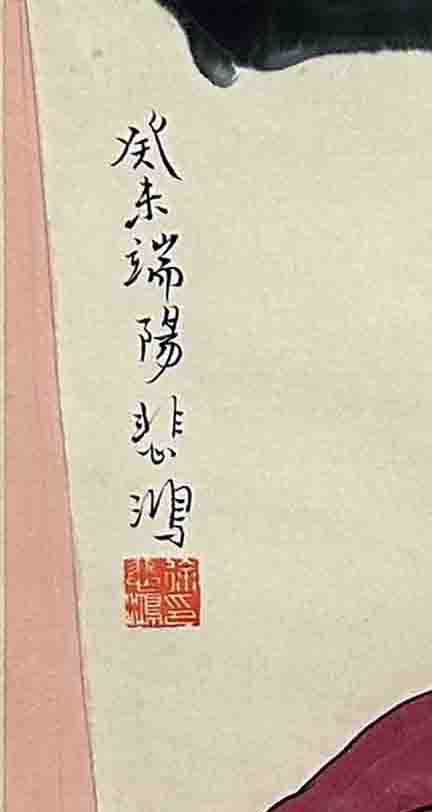 癸未端陽悲鴻
徐悲鴻印